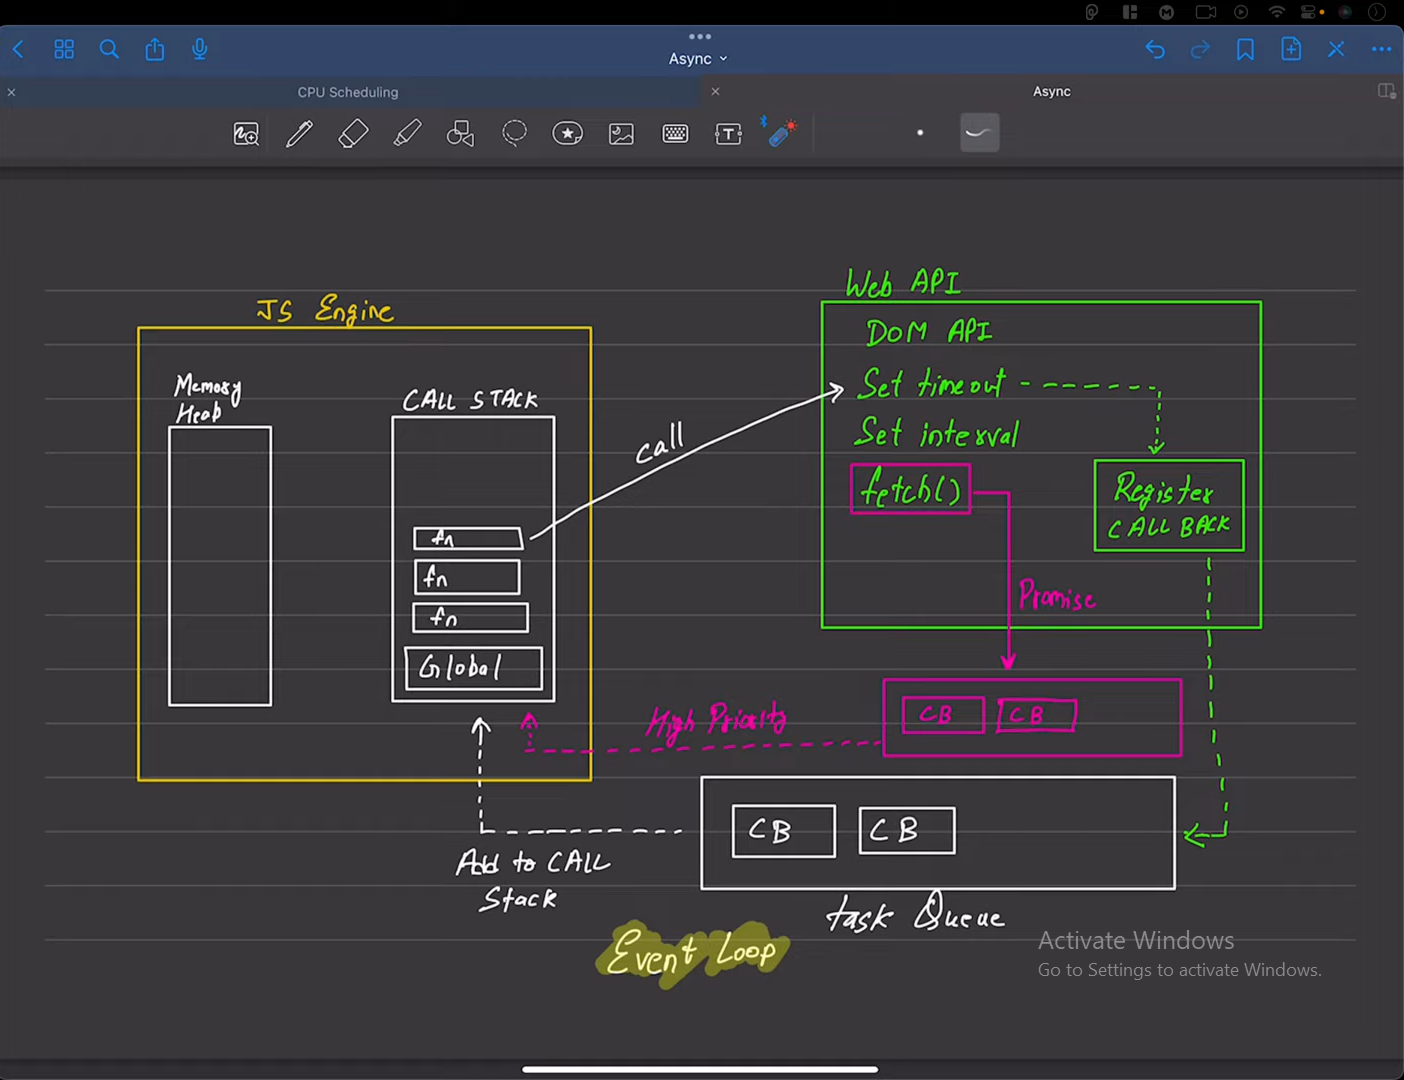 Async
CPU Scheduling
Async
T
JS Engine
Memory
Heap
CALL STACK
fn
fn
fn
Global
call
Web API
DOM API
Set timeout
Set interval
fetch()
Register
CALL BACK
Promise
High Priority
CB CB
CB CB
Add to CALL
Stack
task Queue
Event Loop
Activate Windows
Go to Settings to activate Windows.